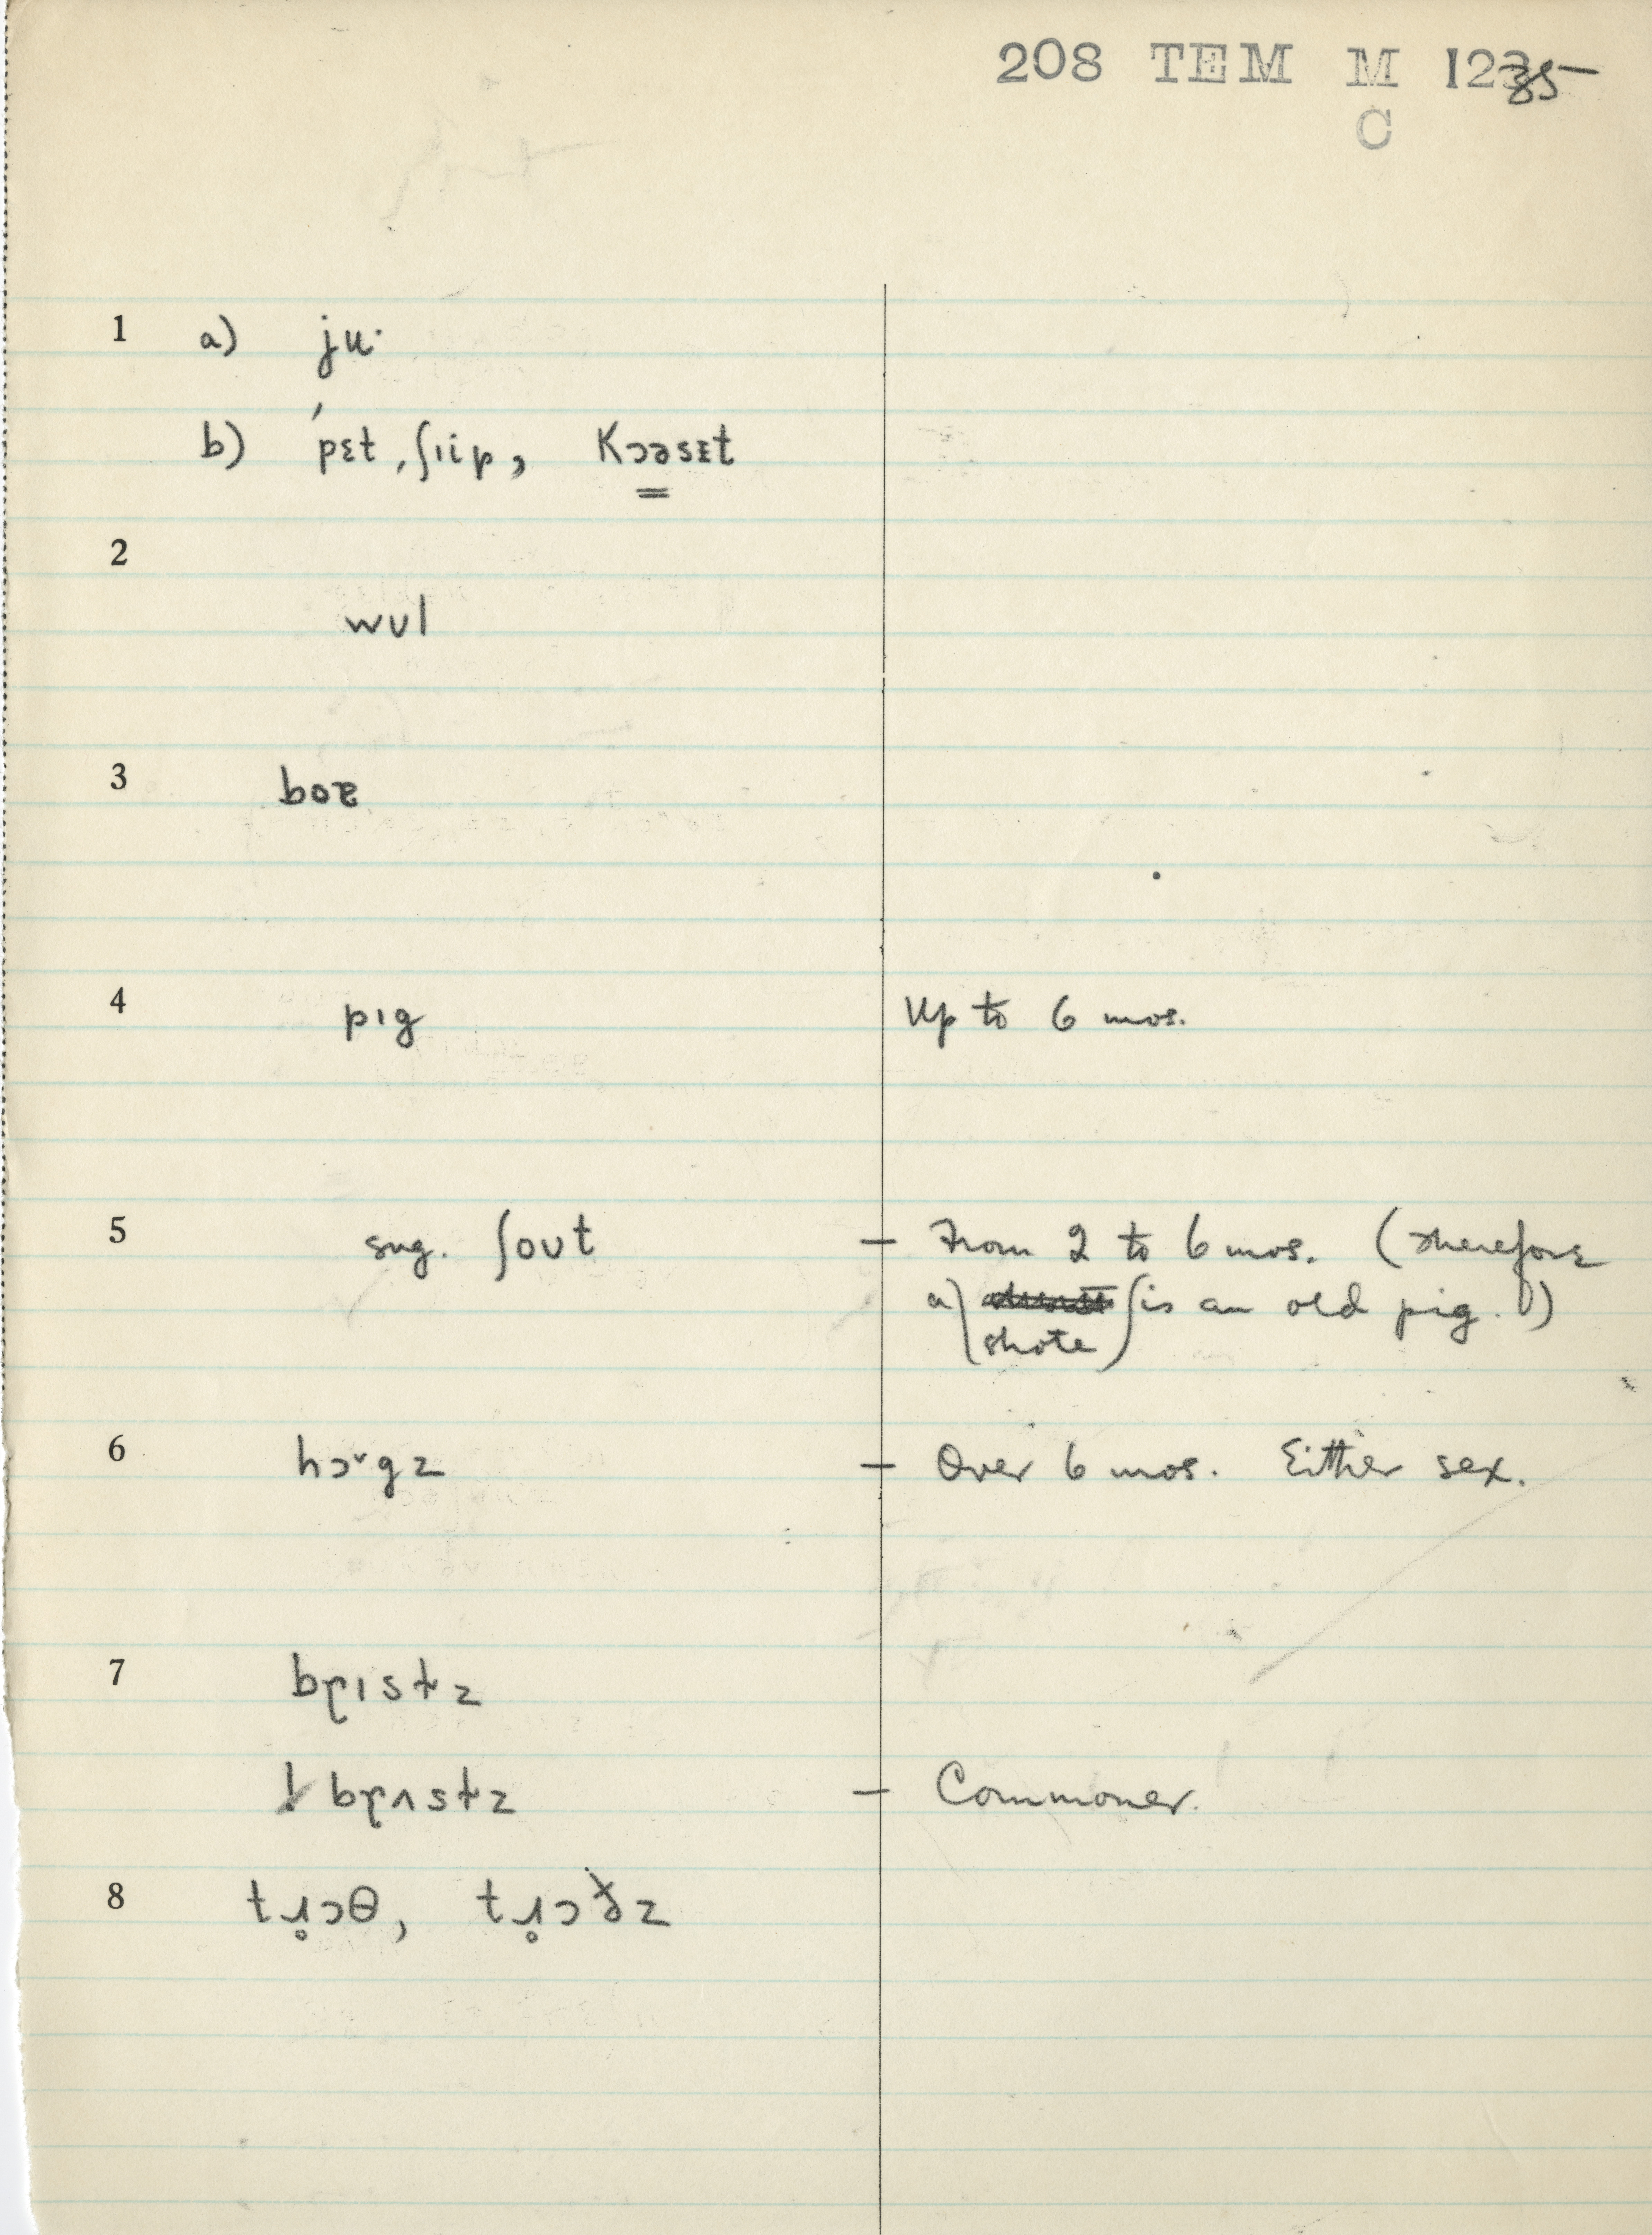 208 TEM M 1235
C
1 a) ju·
b) ˈpɛt, ʃiip, Kɔəsɛt
2
wʊl
3 boɚ
4 pɪg Up to 6 mos.
5 sng. ʃoʊt — From 2 to 6 mos. (Therefore
a shote is an old pig.)
6 hɔ˅gz — Over 6 mos. Either sex.
7 bɽɪstz
! bɽʌstz — Commoner.
8 tɹ̥ɔθ, tɹ̥ɔ z